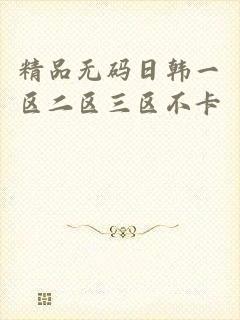 精品无码日韩一
区二区三区不卡